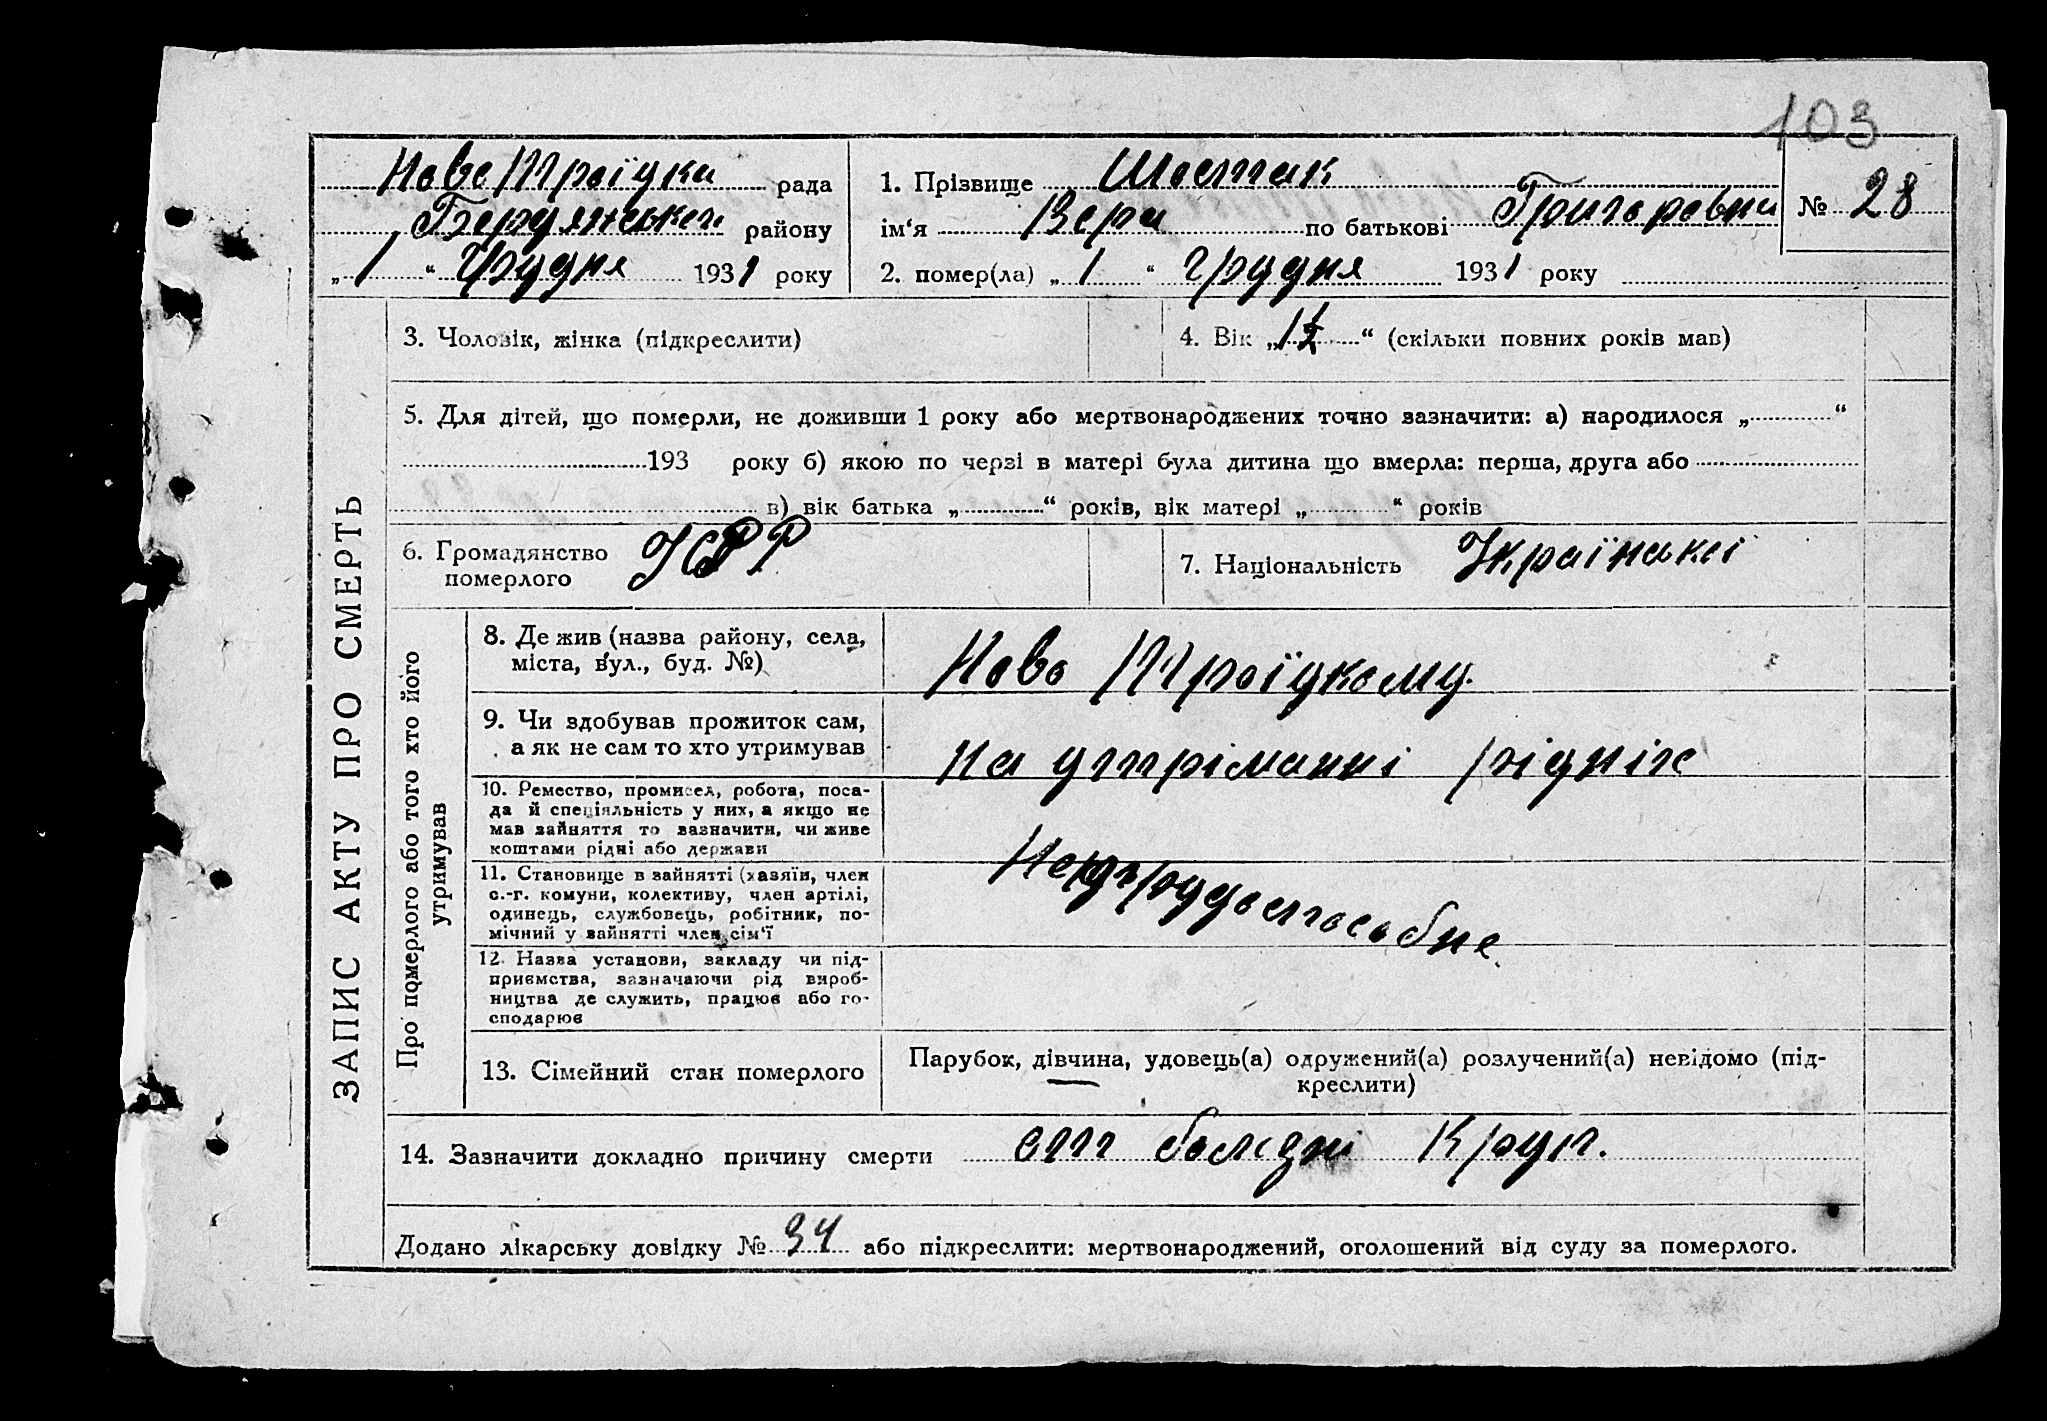 103
Ново Троїцка рада
Бердянської району
„ 1 “ Грудня 1931 року
1. Прізвище Шостак
ім‘я Вера по батькові Григоровна
№ 28
2. помер(ла) „ 1 “ грудня 1931 року
3. Чоловік, жінка (підкреслити)
4. Вік „ 1½ “ (скільки повних років мав)
5. Для дітей, що померли, не доживши 1 року або мертвонароджених точно зазначити: а) народилося „ “
193 року б) якою по черзі в матері була дитина що вмерла: перша, друга або
в) вік батька „ “ років, вік матері „ “ років
6. Громадянство
померлого
УСРР
7. Національність Української
ЗАПИС АКТУ ПРО СМЕРТЬ
Про померлого або того хто його
утримував
8. Де жив (назва району, села,
міста, вул., буд. №)
Ново Троїцкому.
9. Чи здобував прожиток сам,
а як не сам то хто утримував
На утріманні рідніх
10. Ремество, промисел, робота, поса-
да й спеціяльність у них, а якщо не
мав зайняття то зазначити, чи живе
коштами рідні або держави
11. Становище в зайнятті (хазяїн, член
с.-г. комуни, колективу, член артілі,
одинець, службовець, робітник, по-
мічний у зайнятті член сім‘ї
12. Назва установи, закладу чи під-
приємства, зазначаючи рід вироб-
ництва де служить, працює або го-
сподарює
13. Сімейний стан померлого
Парубок, дівчина, удовець(а) одружений(а) розлучений(а) невідомо (під-
креслити)
14. Зазначити докладно причину смерти от болєзні Круп.
Додано лікарську довідку № 34 або підкреслити: мертвонароджений, оголошений від суду за померлого.